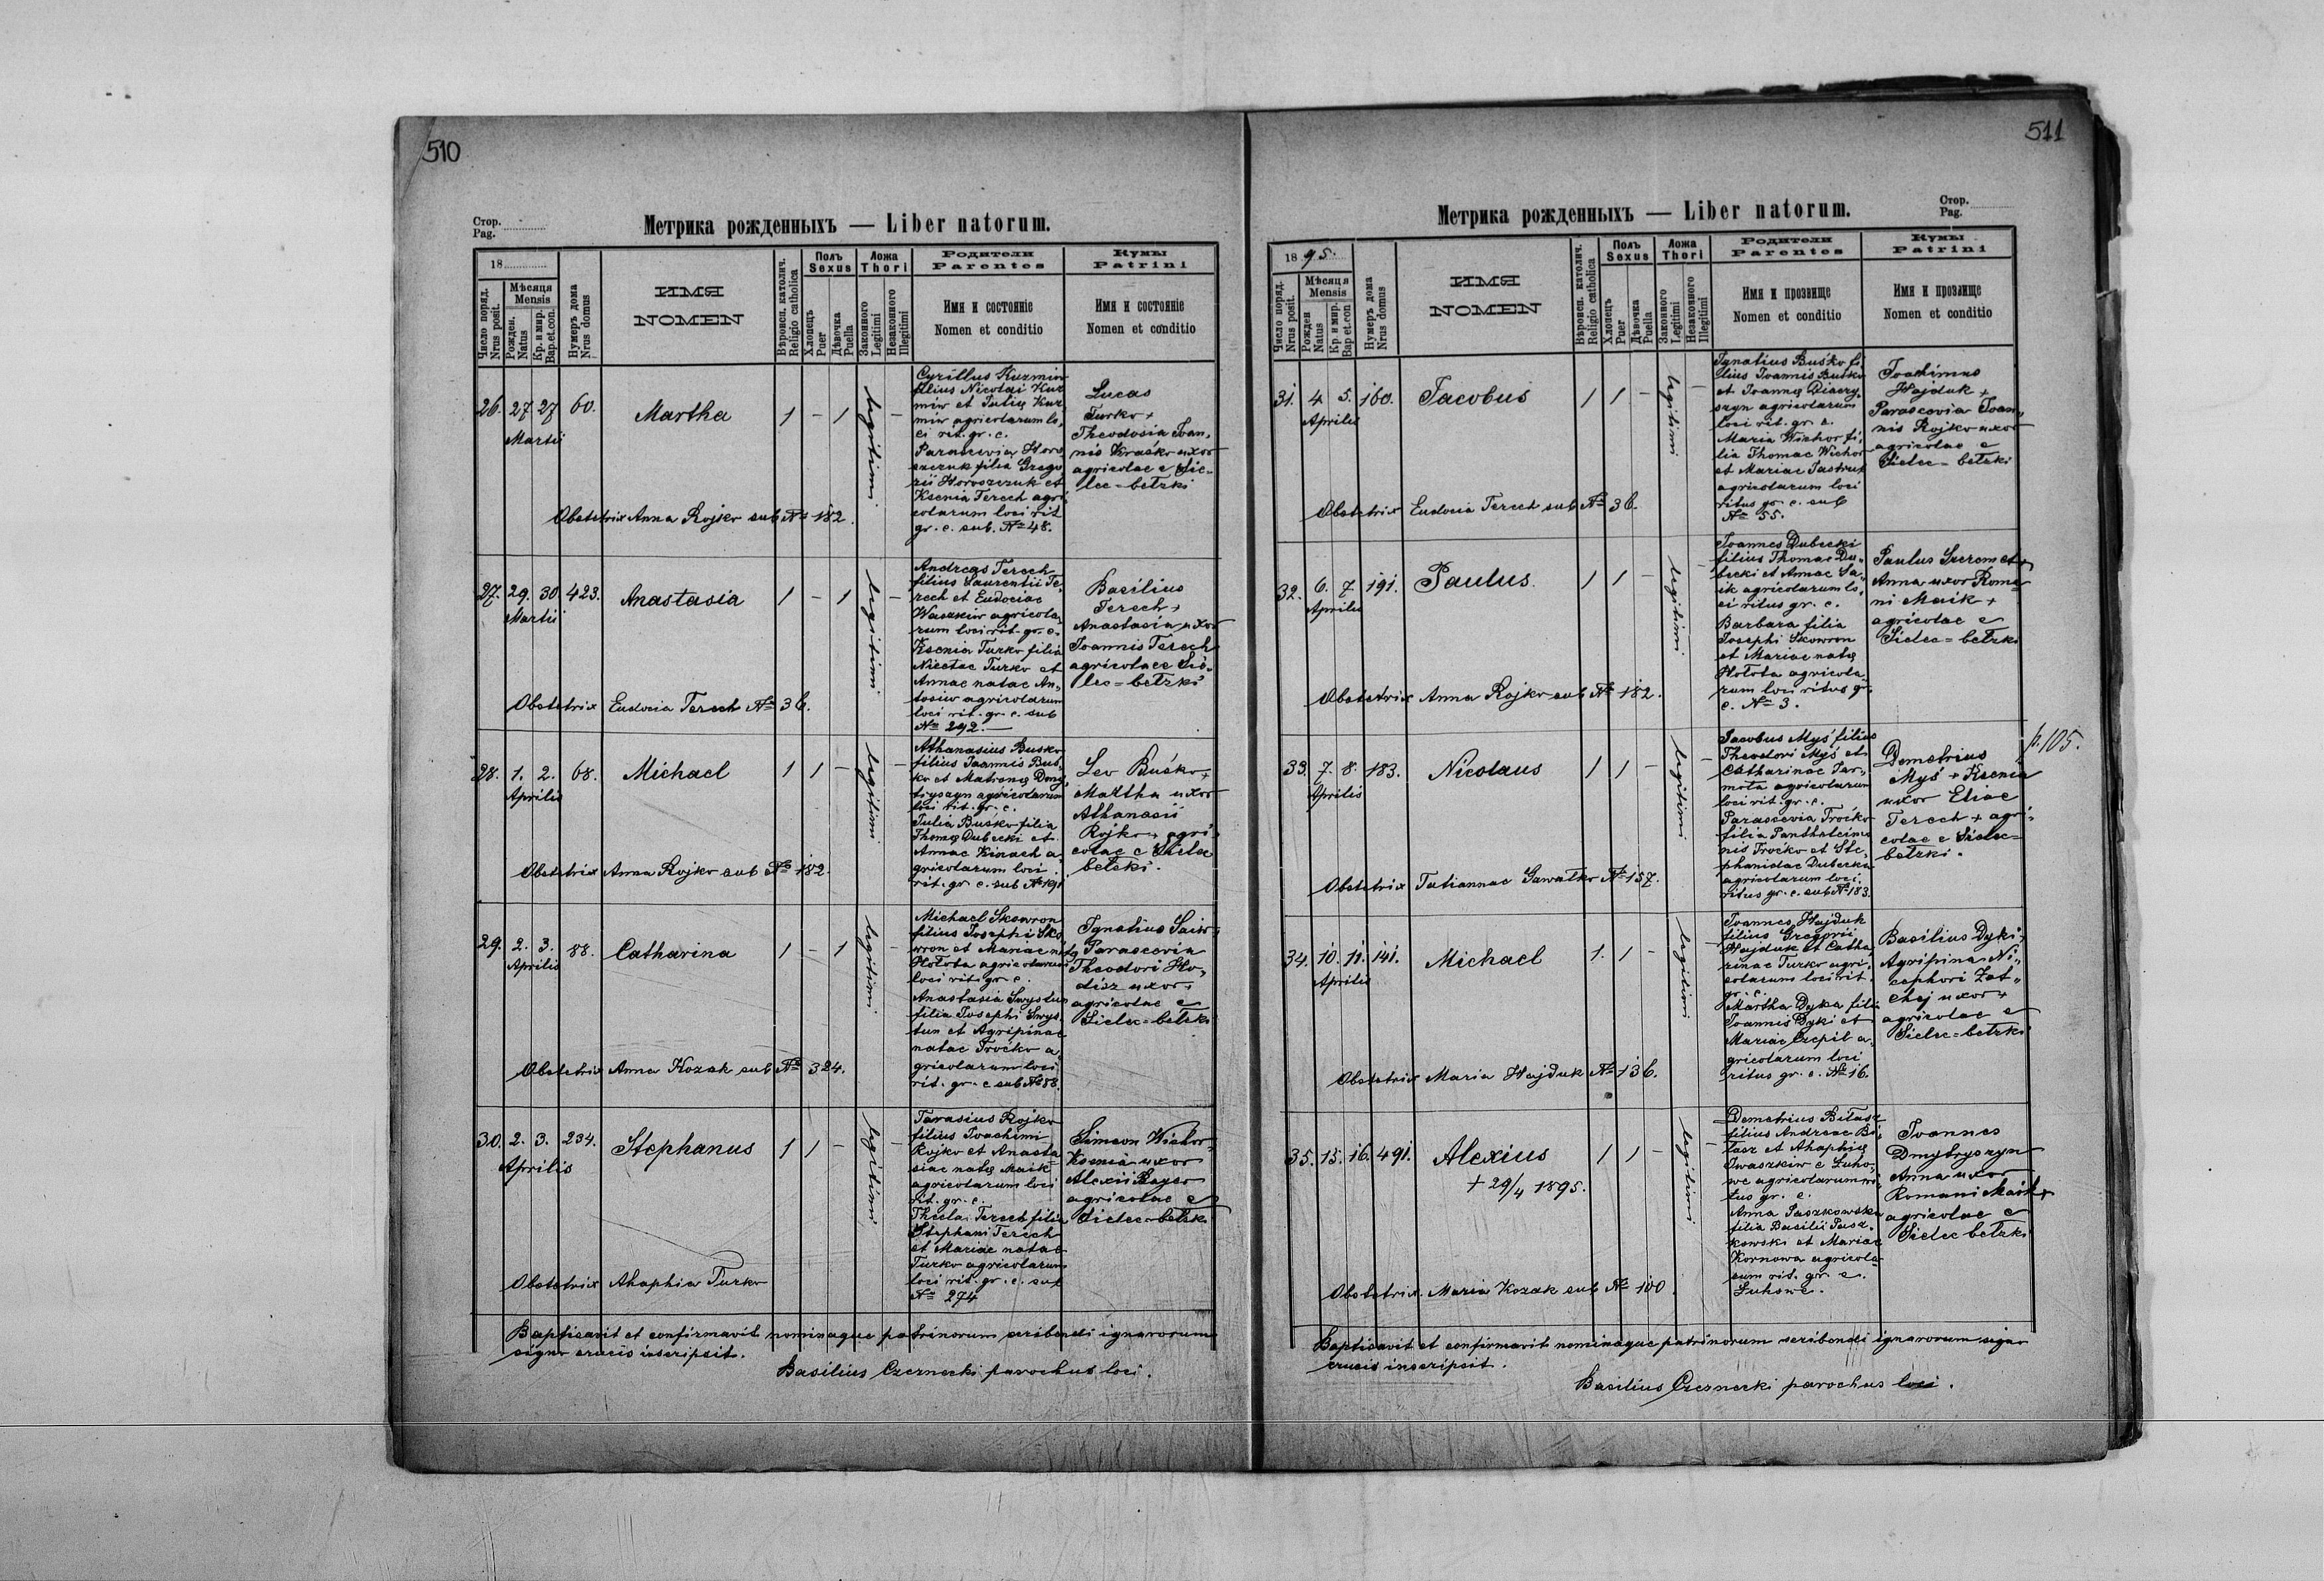 510
Стор.
Pag.
Метрика рожденныхъ — Liber natorum.
18
Число поряд.
Nrus posit.
Мѣсяця
Mensis
Рожден.
Natus
Кр. и мир.
Bap.et.con.
Нумеръ дома
Nrus domus
ИМЯ
NOMEN
Вѣроисп. католич.
Religio catholica
Полъ
Sexus
Хлопецъ
Puer
Дѣвочка
Puella
Ложа
Thori
Законного
Legitimi
Незаконного
Illegitimi
Родители
Parentes
Имя и состояніе
Nomen et conditio
Кумы
Patrini
Имя и состояніе
Nomen et conditio
26. 27 27 60. Martha 1 - 1 legitimi -
Martii
Cyrillus Kuzmiw
filius Nicolai Kuz
miw et Julię Kuz
miw agricolarum lo,
ci rit. gr. c.
Parascevia Horo
szczuk filia Grego
rii Horoszczuk et
Ksenia Terech agri
colarum loci rit
gr. c. sub. № 48.
Lucas
Turko +
Theodosia Joan,
nis Kraśko uxor
agricolae e Sie=
lec=bełzki
Obstetrix Anna Rojko sub № 182.
27. 29. 30 423. Anastasia 1 - 1 legitimi -
Martii
Andreas Terech
filius Laurentii Te,
rech et Eudociae
Waszkiw agricola,
rum loci rit. gr. c.
Ksenia Turko filia
Nicetae Turko et
Annae natae An,
tosiw agricolarum
loci rit. gr. c. sub
№ 292.
Basilius
Terech +
Anastasia uxor
Joannis Terech
agricolae e Sie=
lec=bełzki
Obstetrix Eudocia Terech № 36.
28. 1. 2. 68. Michael 1 1 - legitimi -
Aprilis
Athanasius Busko
filius Joannis Bus,
ko et Matronę Dmy
tryszyn agricolarum
loci rit. gr. c.
Julia Buśko filia
Thomę Dubecki et
Annae Kinach a
gricolarum loci
rit. gr c. sub № 191
Leo Buśko +
Martha uxor
Athanasii
Rojko + agri
colae e Sielec
bełzki.
Obstetrix Anna Rojko sub № 182
29. 2. 3. 88. Catharina 1 - 1 legitimi
Aprilis
Michael Skowron
filius Josephi Sko
wron et Mariae natę
Hołota agricolarum
loci rit. gr c.
Anastasia Swystun
filia Josephi Swys,
tun et Agripinae
natae Troćko a,
gricolarum loci
rit. gr. c sub № 88.
Ignatius Saiw
Parascevia
Theodori Ho,
disz uxor +
agricolae e
Sielec=bełzki
Obstetrix Anna Kozak sub № 324.
30. 2. 3. 234. Stephanus 1 1 - legitimi -
Aprilis
Tarasius Rojko
filius Joachimi
Rojko et Anasta
siae natę Maik
agricolarum loci
rit. gr. c.
Thecla Terech filia
Stephani Terech
et Mariae natae
Turko agricolarum
loci rit. gr. c. sub
№ 274
Simeon Wichor
Ksenia uxor
Alexii
agricolae e
Sielec=bełzki
Obstetrix Ahaphia Turko
Baptisavit et confirmavit nominaque patrinorum scribendi ignarorum
signo crucis inscripsit.
Basilius Czernecki parochus loci.
511
Стор.
Pag.
Метрика рожденныхъ — Liber natorum.
1895.
Число поряд.
Nrus posit.
Мѣсяця
Mensis
Рожден
Natus
Кр. и мир.
Bap et.con
Нумеръ дома
Nrus domus
ИМЯ
NOMEN
Вѣроисп. католич.
Religio catholica
Полъ
Sexus
Хлопецъ
Puer
Дѣвочка
Puella
Ложа
Thori
Законного
Legitimi
Незаконного
Illegitimi
Родители
Parentes
Имя и прозвище
Nomen et conditio
Кумы
Patrini
Имя и прозвище
Nomen et conditio
31. 4 5. 160. Jacobus 1 1 - legitimi -
Aprilis
Ignatius Buśko fi
lius Joannis Busko
et Joannę
agricolarum
loci rit. gr c.
Maria Wichor fi,
lia Thomae Wichor
et Mariae Jastrub
agricolarum loci
ritus gr. c. sub
№ 55.
Joachimus
Hajduk +
Parascevia Joan,
nis Rojko uxor
agricolae e
Sielec=bełzki
Obstetrix Eudocia Terech sub № 36.
32. 6. 7 191. Paulus. 1 1 - legitimi
Aprilis
Joannes Dubecki
filius Thomae Du,
becki et Annae
agricolarum lo,
ci ritus gr. c.
Barbara filia
Josephi Skowron
et Mariae natę
Hołota agricola,
rum loci ritus gr.
c. № 3.
Paulus Szeremet +
Anna uxor Roma
ni Maik +
agricolae e
Sielec=bełzki
Obstetrix Anna Rojko sub № 182.
33. 7. 8. 183. Nicolaus 1 1 - legitimi -
Aprilis
Jacobus Myś filius
Theodori Myś et
Catharinae Jar,
moła agricolarum
loci rit. gr. c.
Parascevia Troćko
filia Panthaleimo
nis Troćko et Ste,
phanidae Dubecka
agricolarum loci
ritus gr. c. sub № 183.
Demetrius
Myś + Ksenia
uxor Eliae
Terech + agri,
colae e Sielec=
bełzki.
p. 105.
Obstetrix Tatiannae Gawałko № 157.
34. 10. 11. 141. Michael 1. 1 - legitimi
Aprilis
Joannes Hajduk
filius Gregorii
Hajduk et Catha,
rinae Turko agri,
colarum loci rit.
gr. c.
Martha Dyka filia
Joannis Dyki et
Mariae Czepil a,
gricolarum loci
ritus gr. c. № 16.
Basilius Dyki +
Agripina Ni,
cephori Zat,
chej uxor +
agricolae e
Sielec=bełzki
Obstetrix Maria Hajduk № 136.
35. 15. 16. 491. Alexius 1 1 - legitimi -
+ 29/4 1895.
Demetrius Biłasz
filius Andreae Bi,
łasz et Ahaphię
Iwaszkiw e Łuho,
we agricolarum ri,
tus gr. c.
Anna Paszkowska
filia Basilii Pasz,
kowski et Mariae
Kornowa agricola
rum rit. gr. c.
Łuhowe.
Joannes
Dmytryszyn
Anna uxor
Romani Maik +
agricolae e
Sielec bełzki
Obstetrix. Maria Kozak sub № 100.
Baptisavit et confirmavit nominaque patrinorum scribendi ignarorum signo
crucis inscripsit.
Basilius Czernecki parochus loci.